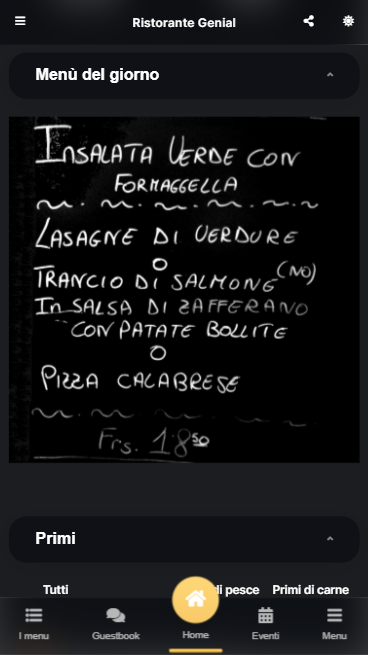 Ristorante Genial
Menù del giorno
INSALATA VERDE CON
FORMAGGELLA
LASAGNE DI VERDURE
O
TRANCIO DI SALMONE (NO)
IN SALSA DI ZAFFERANO
CON PATATE BOLLITE
O
PIZZA CALABRESE
Frs. 18.50
Primi
Tutti
di pesce
Primi di carne
I menu
Guestbook
Home
Eventi
Menu